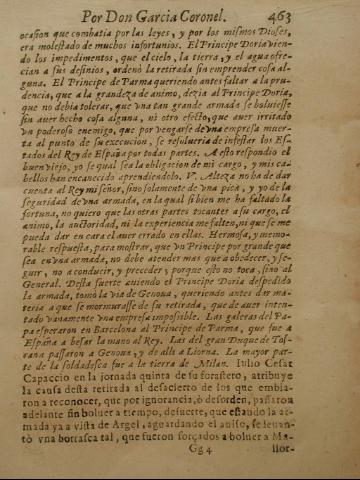 Por Don Garcia Coronel. 463
ocasion que combatia por las leyes, y por los mismos Dioses,
era molestado de muchos infortunios. El Principe Doria vien-
do los impedimentos, que el cielo, la tierra, y el agua ofre-
cian a sus definios, ordenò la retirada sin emprender cosa al-
guna. El Principe de Parma queriendo antes faltar a la pru-
dencia, que a la grandeza de animo, dezia al Principe Doria,
que no debia tolerar, que vna tan grande armada se boluiesse
sin auer hecho cosa alguna, ni otro efeto, que auer irritado
vn poderoso enemigo, que por vengarse de vna empresa muer-
ta al punto de su execucion, se resolueria de infestar los Es-
tados del Rey de España por todas partes. A esto respondio el
buen viejo, yo se qual sea la obligacion de mi cargo, y mis ca-
bellos han encanecido aprendiendolo. V. Alteza no ha de dar
cuenta al Rey mi señor, sino solamente de vna pica, y yo de la
seguridad de vna armada, en la qual si bien me ha faltado la
fortuna, no quiero que las otras partes tocantes a su cargo, el
animo, la auctoridad, ni la experiencia me falten, ni que se me
pueda dar en cara el auer errado en ellas. Hermosa, y memo-
rable respuesta, para mostrar, que vn Principe por grande que
sea en vna armada, no debe atender mas que a obedecer, y se-
guir, no a conducir, y preceder; porque esto no toca, sino al
General. Desta suerte auiendo el Principe Doria despedido
la armada, tomò la via de Genoua, queriendo antes dar ma-
teria a que se murmurasse de su retirada, que de auer inten-
tado vanamente vna empresa impossible. Las galeras del Pa-
pa esperaron en Barcelona al Principe de Parma, que fue a
España a besar la mano al Rey. Las del gran Duque de Tos-
cana passaron a Genoua, y de alli a Liorna. La mayor par-
te de la soldadesca fue a la tierra de Milan. Iulio Cesar
Capaccio en la jornada quinta de su forastero, atribuye
la causa desta retirada al desacierto de los que embia-
ron a reconocer, que por ignorancia, ò desorden, passaron
adelante sin boluer a tiempo, desuerte, que estando la ar-
mada ya a vista de Argel, aguardando el auiso, se leuan-
tò vna borrasca tal, que fueron forçados a boluer a Ma-
Gg 4 llor-